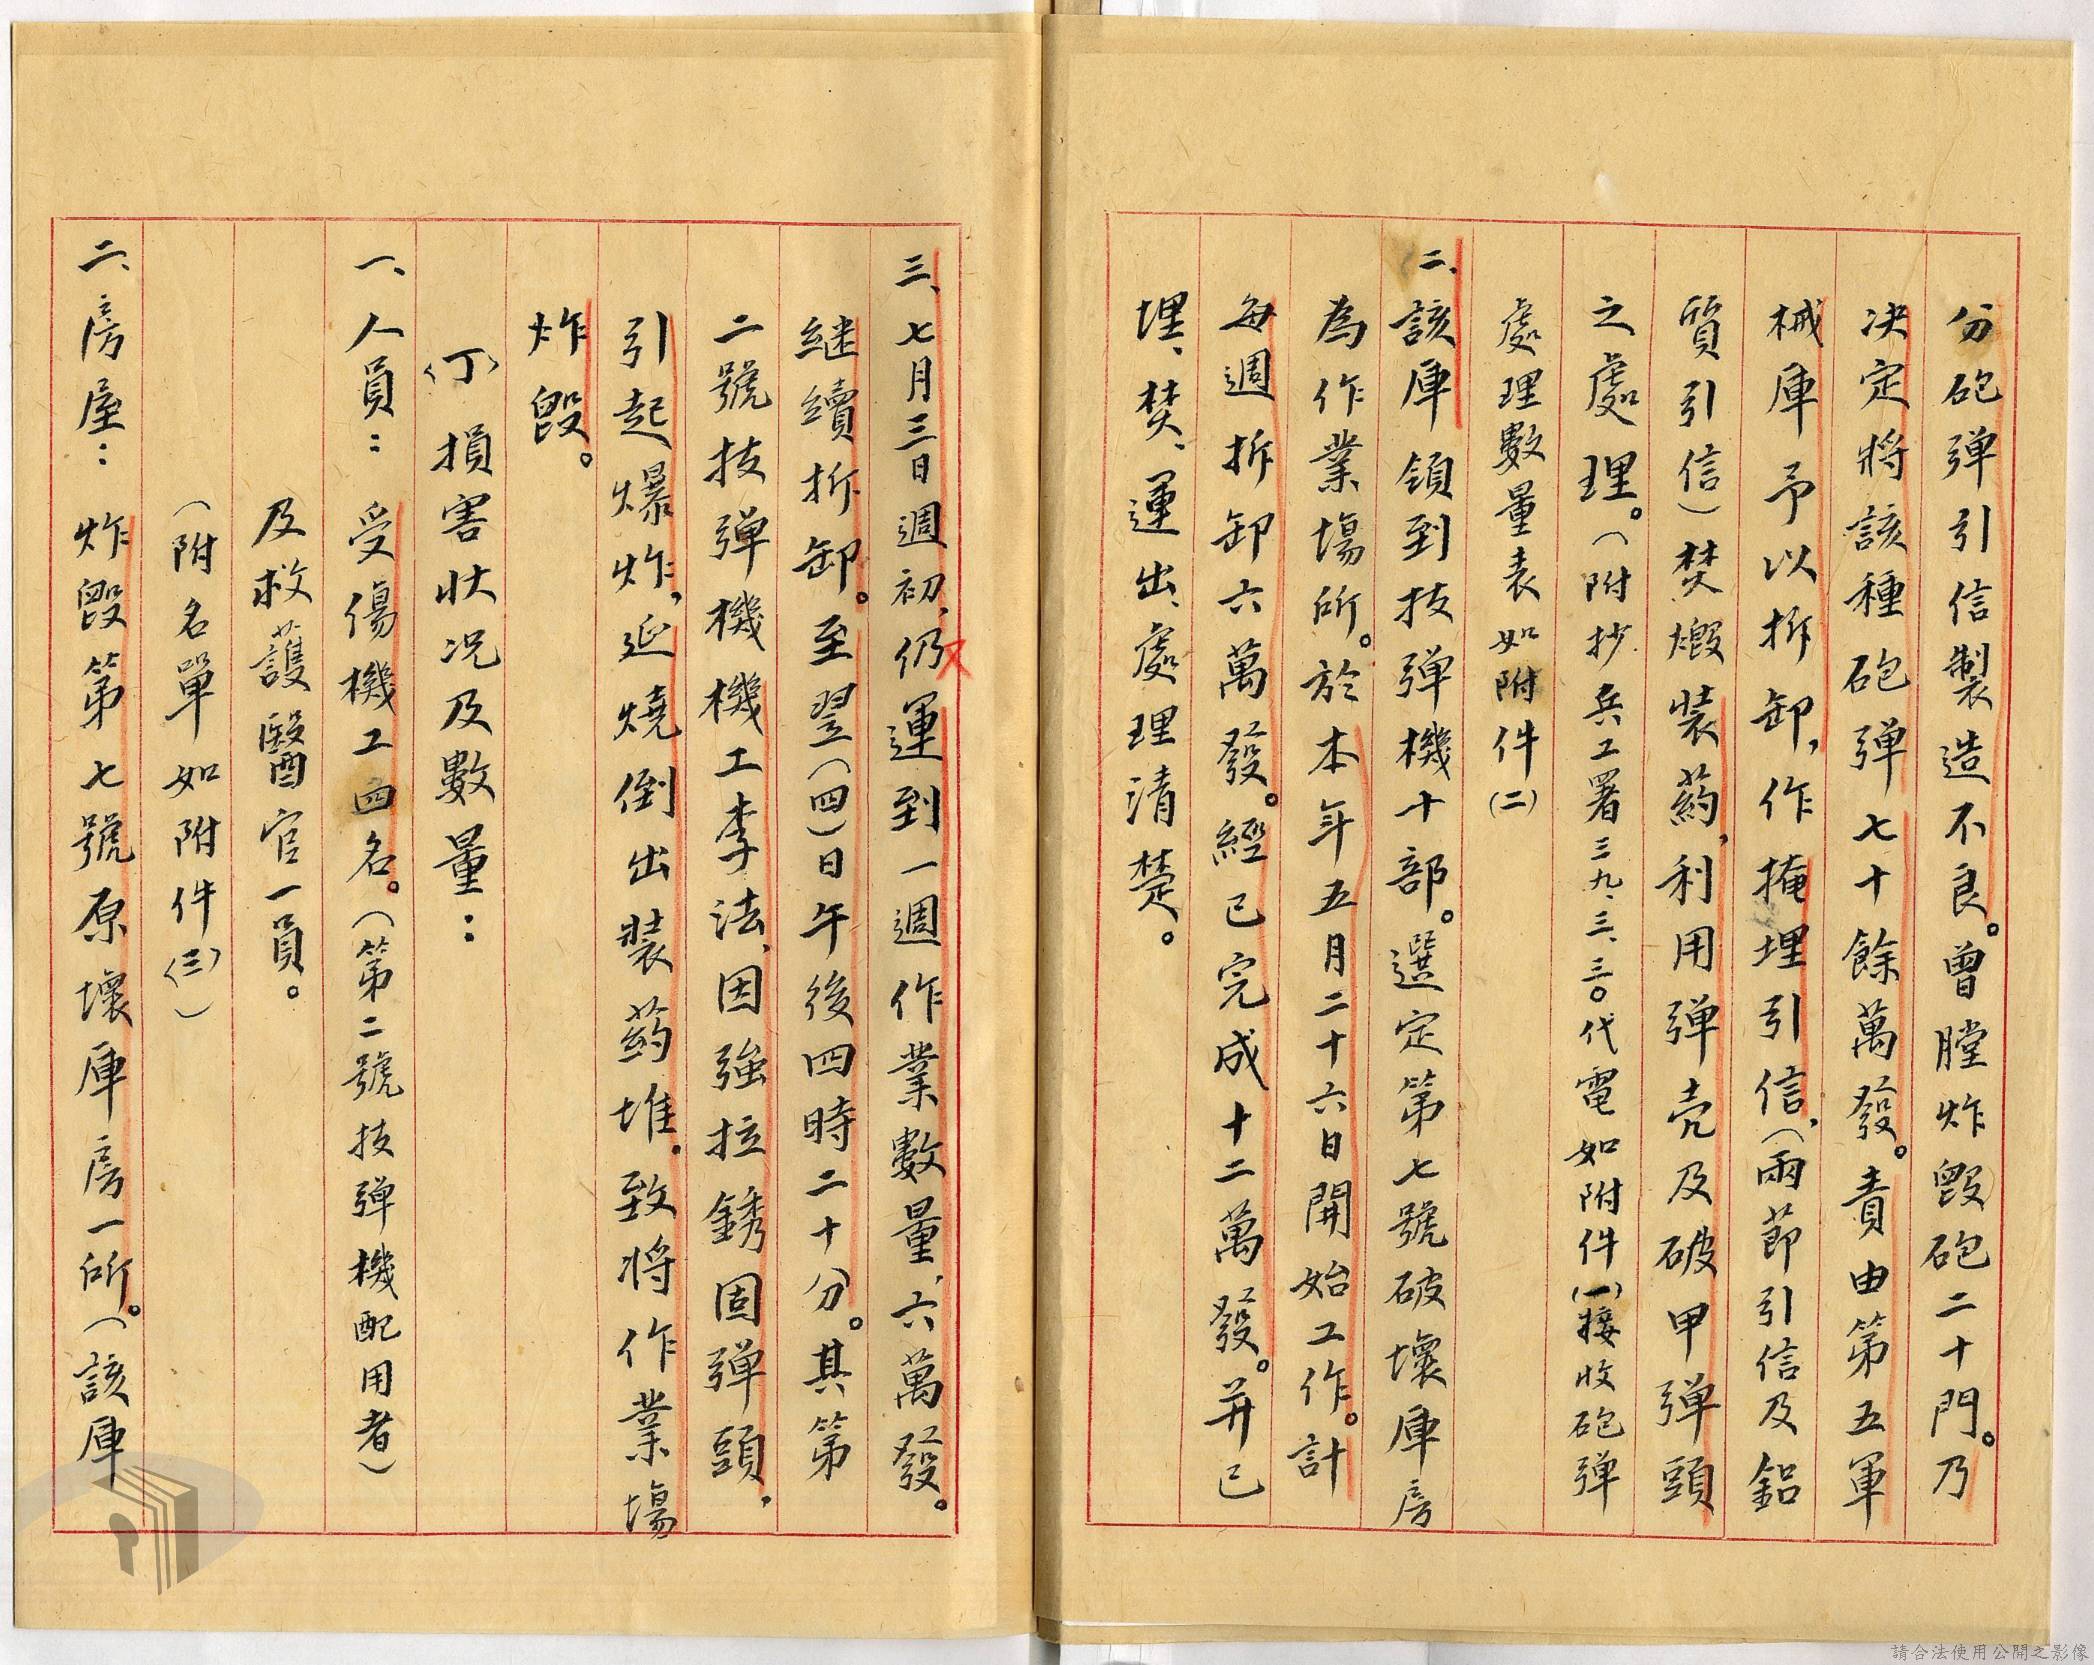 分砲弹引信製造不良。曾膛炸毁砲二十門。乃
决定將該種砲弹七十餘萬發。責由第五軍
械庫予以拆卸，作掩埋引信，（兩節引信及鋁
質引信）焚燬裝葯，利用弹壳及破甲弹頭
之處理。（附抄兵工署三九、三、三〇代電如附件(一)接收砲弹
處理數量表如附件(二)
二、該庫領到技弹機十部。選定第七號破壞庫房
為作業場所。於本年五月二十六日開始工作。計
每週拆卸六萬發。經已完成十二萬發。并已
埋、焚、運出、處理清楚。
三、七月三日週初，仍運到一週作業數量，六萬發。
继續拆卸。至翌（四）日午後四時二十分。其第
二號技弹機機工李法，因強拉銹固弹頭，
引起爆炸，延燒倒出裝葯堆。致将作業場
炸毁。
〈丁〉損害狀况及數量：
一、人員：受傷機工四名。（第二號技弹機配用者）
及救護醫官一員。
（附名單如附件〈三〉）
二、房屋：炸毁第七號原壞庫房一所。（該庫
請合法使用公開之影像